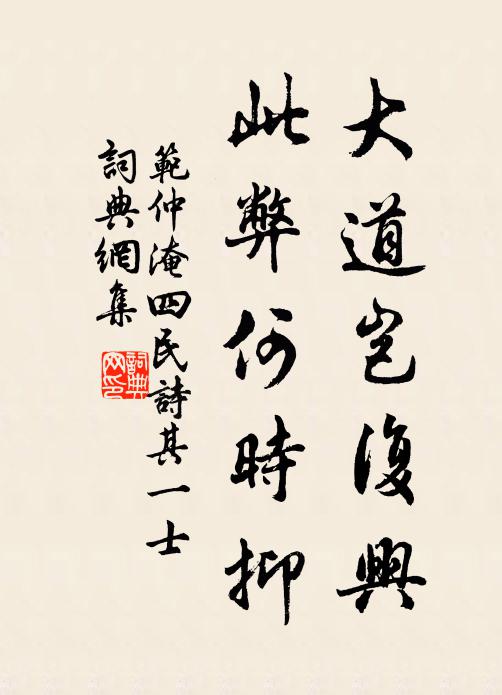 大道豈復興
此弊何時抑
範仲淹四民詩其一士
詞典網集
詞典網印